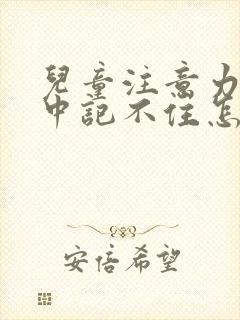 兒童注意力
中記不住怎
安倍希望